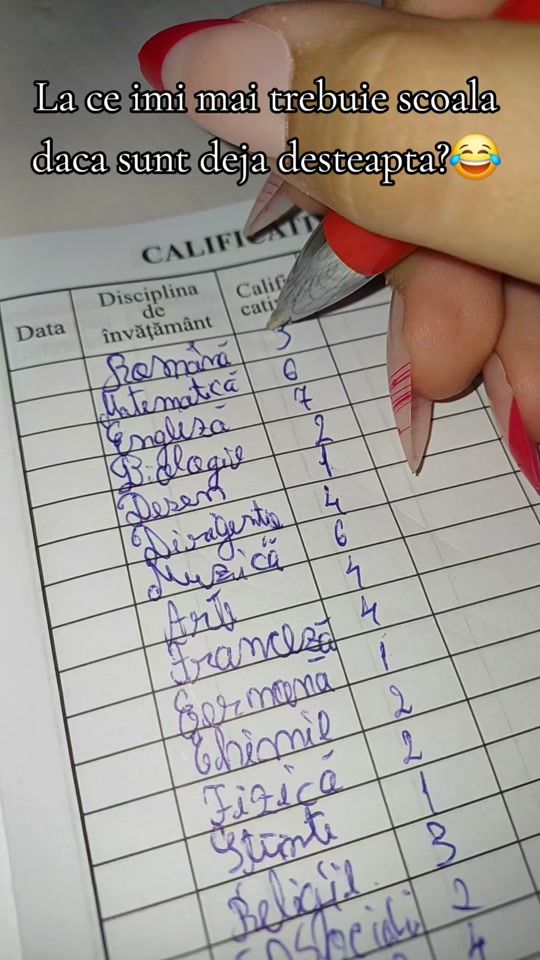 La ce imi mai trebuie scoala
daca sunt deja desteapta?😂
CALIFICATI
Data
Disciplina
de
învățământ
Calif
cati
Română 5
Matematică 6
Engleză 7
Biologie 2
Desen 1
Dirigenție 4
Muzică 6
Arte 4
Franceză 4
Germană 1
Chimie 2
Fizică 2
Științe 1
Religie 3
2
4